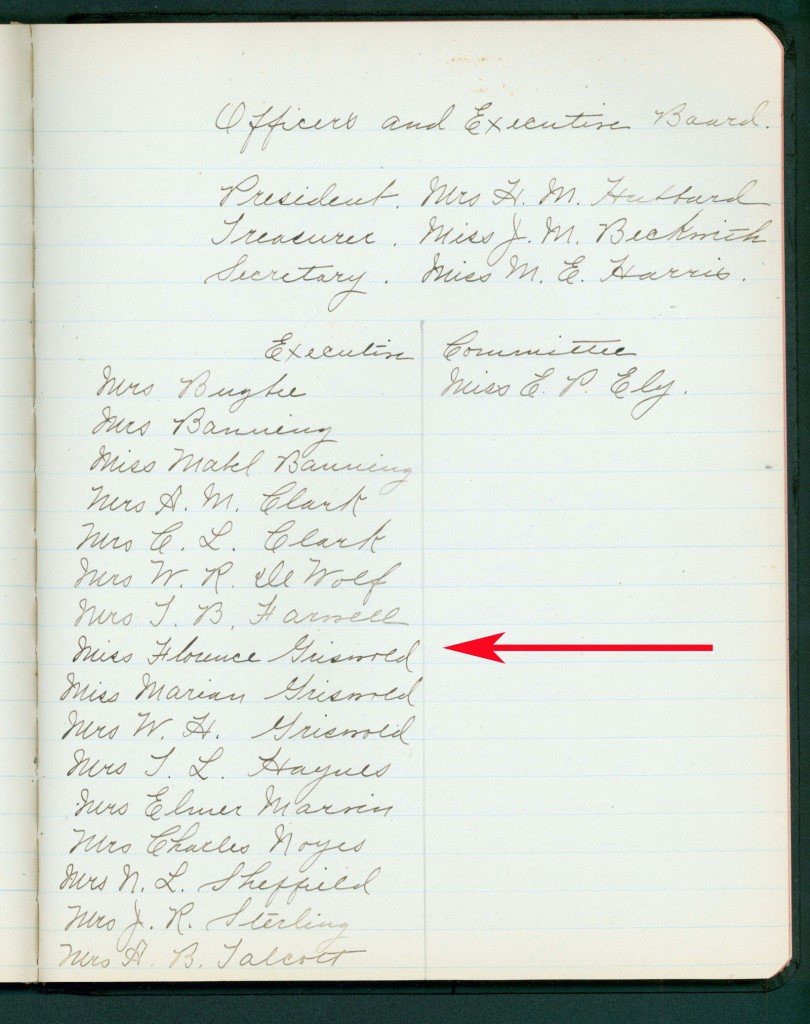 Officers and Executive Board.
President. Mrs H. M. Hubbard
Treasurer. Miss J. M. Beckwith
Secretary. Miss M. E. Harris.
Executive Committee
Mrs Bugbee
Miss E. P. Ely.
Mrs Banning
Miss Mabel Banning
Mrs A. M. Clark
Mrs C. L. Clark
Mrs W. R. De Wolf
Mrs T. B. Farwell
Miss Florence Griswold
Miss Marian Griswold
Mrs W. H. Griswold
Mrs T. L. Haynes
Mrs Elmer Marvin
Mrs Charles Noyes
Mrs N. L. Sheffield
Mrs J. R. Sterling
Mrs A. B. Talcott